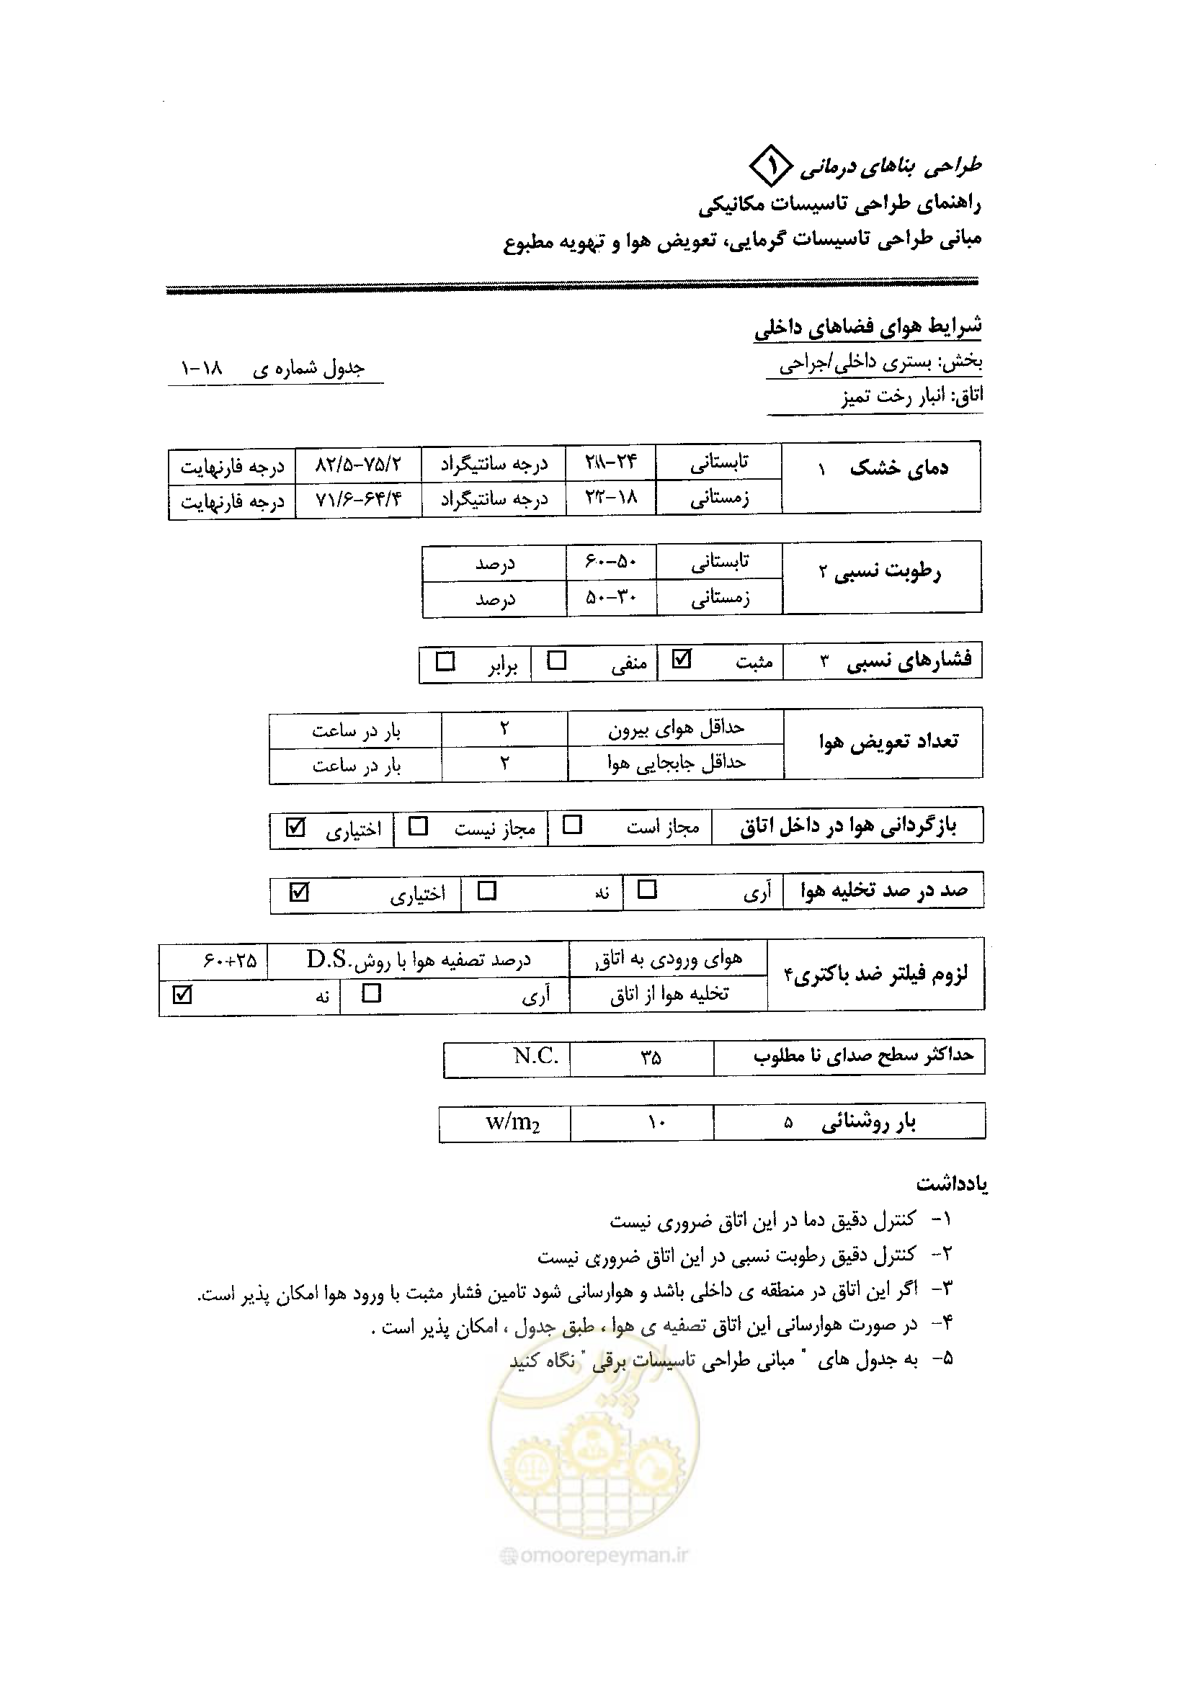 طراحی بناهای درمانی ۱
راهنمای طراحی تاسیسات مکانیکی
مبانی طراحی تاسیسات گرمایی، تعویض هوا و تهویه مطبوع
شرایط هوای فضاهای داخلی
بخش: بستری داخلی/جراحی
جدول شماره ی ۱-۱۸
اتاق: انبار رخت تمیز
دمای خشک ۱ تابستانی ۲۸-۲۴ درجه سانتیگراد ۸۲/۵-۷۵/۲ درجه فارنهایت
زمستانی ۲۲-۱۸ درجه سانتیگراد ۷۱/۶-۶۴/۴ درجه فارنهایت
رطوبت نسبی ۲ تابستانی ۶۰-۵۰ درصد
زمستانی ۵۰-۳۰ درصد
فشارهای نسبی ۳ مثبت ☑ منفی ☐ برابر ☐
تعداد تعویض هوا حداقل هوای بیرون ۲ بار در ساعت
حداقل جابجایی هوا ۲ بار در ساعت
بازگردانی هوا در داخل اتاق مجاز است ☐ مجاز نیست ☐ اختیاری ☑
صد در صد تخلیه هوا آری ☐ نه ☐ اختیاری ☑
لزوم فیلتر ضد باکتری۴ هوای ورودی به اتاق درصد تصفیه هوا با روش D.S. ۶۰+۲۵
تخلیه هوا از اتاق آری ☐ نه ☑
حداکثر سطح صدای نا مطلوب ۳۵ N.C.
بار روشنائی ۵ ۱۰ w/m2
یادداشت
۱- کنترل دقیق دما در این اتاق ضروری نیست
۲- کنترل دقیق رطوبت نسبی در این اتاق ضروری نیست
۳- اگر این اتاق در منطقه ی داخلی باشد و هوارسانی شود تامین فشار مثبت با ورود هوا امکان پذیر است.
۴- در صورت هوارسانی این اتاق تصفیه ی هوا ، طبق جدول ، امکان پذیر است .
۵- به جدول های " مبانی طراحی تاسیسات برقی " نگاه کنید
امورپیمان
@omoorepeyman.ir